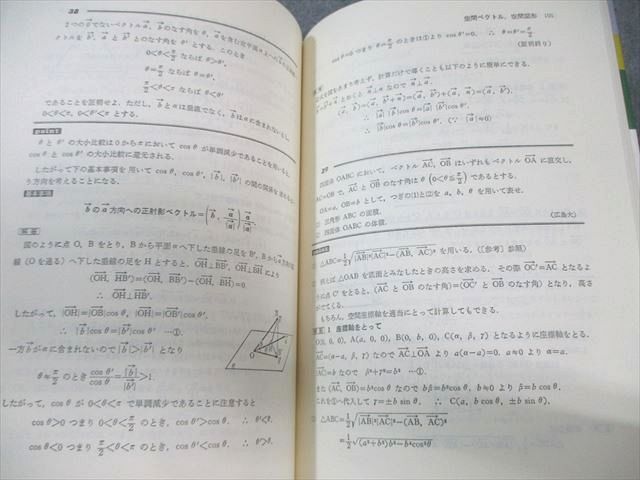 38
2つの0でないベクトル a⃗, b⃗ のなす角を θ, a⃗ を含む定平面 α への b⃗ の
クトルを b⃗', a⃗ と b⃗' とのなす角を θ' とする. このとき
0<θ<π/2 ならば θ>θ',
θ=π/2 ならば θ=θ',
π/2<θ<π ならば θ<θ'
であることを証明せよ. ただし, b⃗ と α は垂直でなく, b⃗ は α に含まれないとし,
0<θ<π, 0<θ'<π とする.
point
θ と θ' の大小比較は 0 から π において cos θ が単調減少であることを用いると,
cos θ と cos θ' の大小比較に還元される.
したがって下の基本事項を用いて cos θ, cos θ', |b⃗|, |b⃗'| の間の関係を
う方向を考えることになる.
基本事項
b⃗ の a⃗ 方向への正射影ベクトル=(b⃗, a⃗/|a⃗|)a⃗/|a⃗|
解答
図のように点 O, B をとり, B から平面 α へ下した垂線の足を B', B から
線 (O を通る) へ下した垂線の足を H とすると, OH⊥BB', OH⊥BH により
(OH, HB')=(OH, BB')−(OH, BH)=0.
∴ OH⊥HB'.
したがって, |OH|=|OB|cos θ, |OH|=|OB'|cos θ'.
∴ |b⃗|cos θ=|b⃗'|cos θ' …①.
一方 b⃗ が α に含まれないので |b⃗|>|b⃗'| となり
θ≠π/2 のとき cos θ'/cos θ=|b⃗|/|b⃗'|>1.
したがって, cos θ が 0<θ<π で単調減少であることに注意すると
cos θ>0 つまり 0<θ<π/2 のとき, cos θ'>cos θ. ∴ θ'<θ.
cos θ<0 つまり π/2<θ<π のとき, cos θ'<cos θ. ∴ θ'>θ.
空間ベクトル, 空間図形 101
cos θ=0 つまり θ=π/2 のときは①より cos θ'=0. ∴ θ'=θ=π/2
(証明終り)
図をあまり考えず, 計算だけで導くことも以下のように簡単にできる.
とおくと a⃗⊥α なので
∴ |a⃗||b⃗|cos θ=|a⃗||b⃗'|cos θ'.
∴ |b⃗|cos θ=|b⃗'|cos θ'. (∵ |a⃗|≠0)
39
四面体 OABC において, ベクトル AC, OB はいずれもベクトル OA に直交し,
AC=OB で, AC と OB のなす角は θ (0<θ≦π/2) であるとする.
OA=a, OB=b として, つぎの(1)と(2)を a, b, θ を用いて表せ.
三角形 ABC の面積.
四面体 OABC の体積.
(広島大)
△ABC=1/2√(|AB|²|AC|²−(AB, AC)²) を用いる. (〔参考〕参照)
例えば △OAB を底面とみなしたときの高さを求める. その際 OC'=AC となるよ
うに点 C' をとると, (AC と OB のなす角)=(OC' と OB のなす角) となり, 高さ
がでてくる.
もちろん, 空間座標を適当にとって計算してもできる.
解 1 座標軸をとって
O(0, 0, 0), A(a, 0, 0), B(0, b, 0), C(α, β, γ) となるように座標軸をとる.
AC=(α−a, β, γ) なので AC⊥OA より a(α−a)=0. a≠0 より α=a.
|AC|=b なので β²+γ²=b² …①.
また (AC, OB)=b²cos θ なので bβ=b²cos θ. b≠0 より β=b cos θ.
これを①へ代入して γ=±b sin θ. ∴ C(a, b cos θ, ±b sin θ).
△ABC=1/2√(|AB|²|AC|²−(AB, AC)²)
=1/2√((a²+b²)b²−b⁴cos²θ